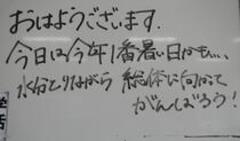 おはようございます.
今日は今年1番暑い日かも....
水分とりながら 総体に向かって
がんばろう!